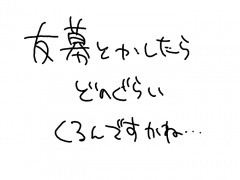 友募とかしたら
どのぐらい
くるんですかね…